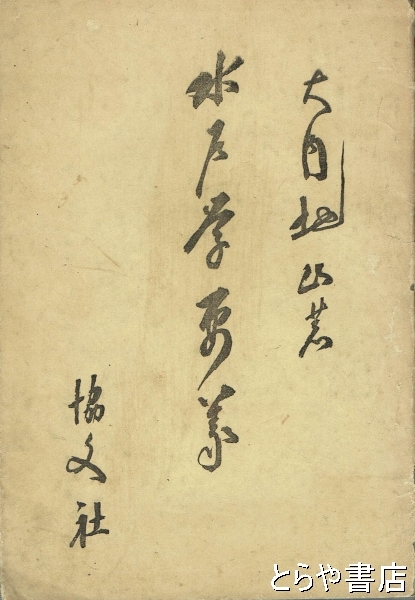 大月桂山著
水戸学要義
協文社
とらや書店